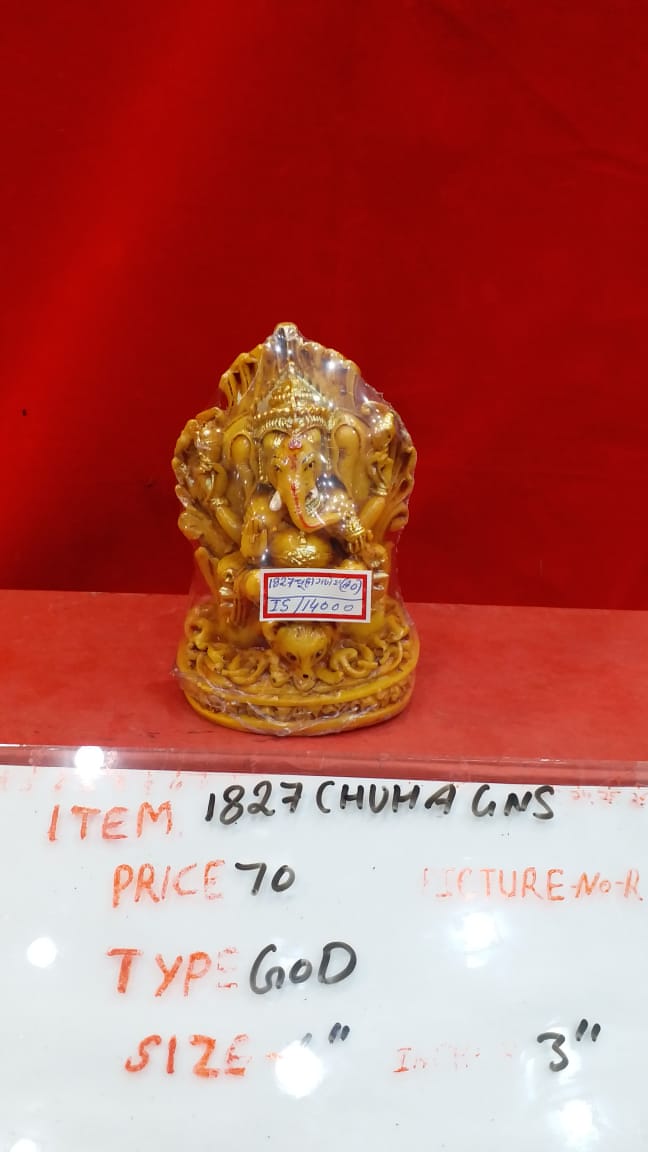 1827 चूहा गणेश (60)
IS/14000
ITEM 1827 CHUHA GNS
PRICE 70 PICTURE-NO-R
TYPE GOD
SIZE " 3"